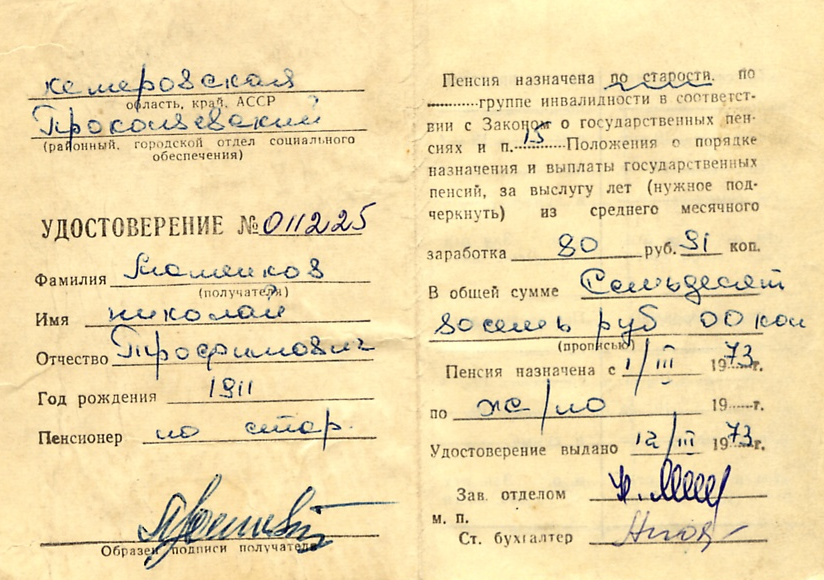 Кемеровская
область, край, АССР
Прокопьевский
(районный, городской отдел социального
обеспечения)
УДОСТОВЕРЕНИЕ № 011225
Фамилия
(получателя)
Имя николай
Отчество Трофимович
Год рождения 1911
Пенсионер по стар.
Образец подписи получателя
Пенсия назначена по старости, по
..........группе инвалидности в соответст-
вии с Законом о государственных пен-
сиях и п. 15 Положения о порядке
назначения и выплаты государственных
пенсий, за выслугу лет (нужное под-
черкнуть) из среднего месячного
заработка 80 руб. 91 коп.
В общей сумме Семьдесят
восемь руб 00 коп
(прописью)
Пенсия назначена с 1/III 1973г.
по ж/по 19......г.
Удостоверение выдано 12/III 1973г.
Зав. отделом
м. п.
Ст. бухгалтер